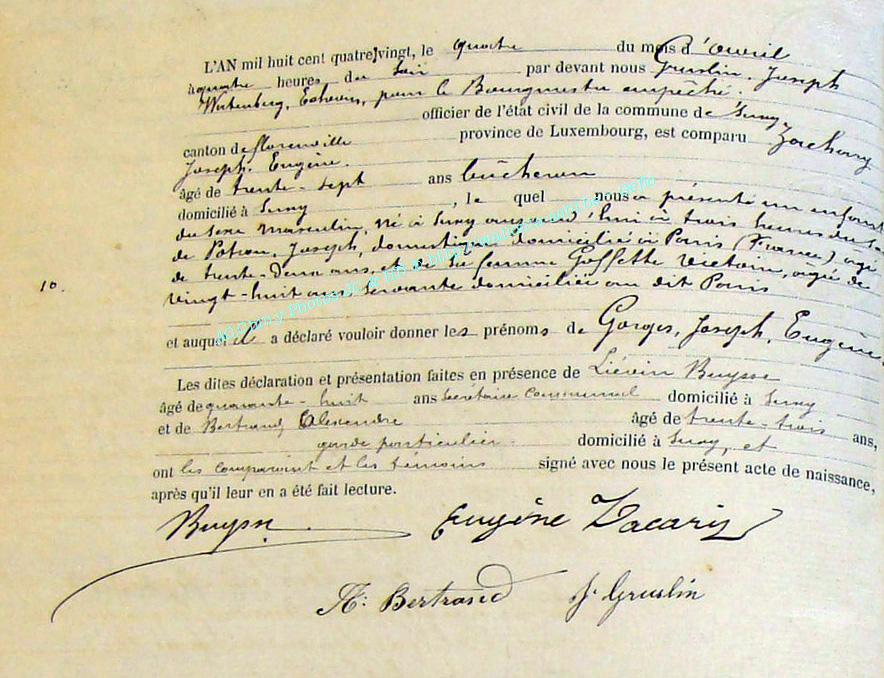 L'AN mil huit cent quatre vingt, le quatre du mois d'avril
à quatre heures du soir par devant nous Gruslin, Joseph
Echevin, pour le Bourgmestre empêché.
officier de l'état civil de la commune de Suxy,
canton de florenville province de Luxembourg, est comparu Zachary
Joseph, Eugène.
âgé de trente-sept ans bûcheron
domicilié à Suxy, le quel nous a présenté un enfant
du sexe masculin, né à Suxy aujourd'hui à trois heures du
de Potron, Joseph, domestique domicilié à Paris (France) agé
de trente-deux ans, et de sa femme Goffette Victoire, agée de
vingt-huit ans, servante domiciliée au dit Paris
10.
et auquel il a déclaré vouloir donner les prénoms de Gorges, Joseph, Eugène
Les dites déclaration et présentation faites en présence de Liévin Buysse
âgé de quarante-huit ans Secrétaire Communal domicilié à Suxy
et de Bertrand Alexandre âgé de trente-trois ans,
garde particulier. domicilié à Suxy, et
ont les comparant et les témoins signé avec nous le présent acte de naissance,
après qu'il leur en a été fait lecture.
Buysse Eugène Zacariy
A: Bertrand J. Gruslin